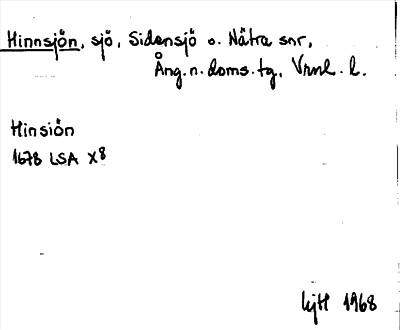 Hinnsjön, sjö, Sidensjö o. Nätra snr,
Ång. n. doms. tg, Vrnl. l.
Hinsiön
1678 LSA X8
LjH 1968